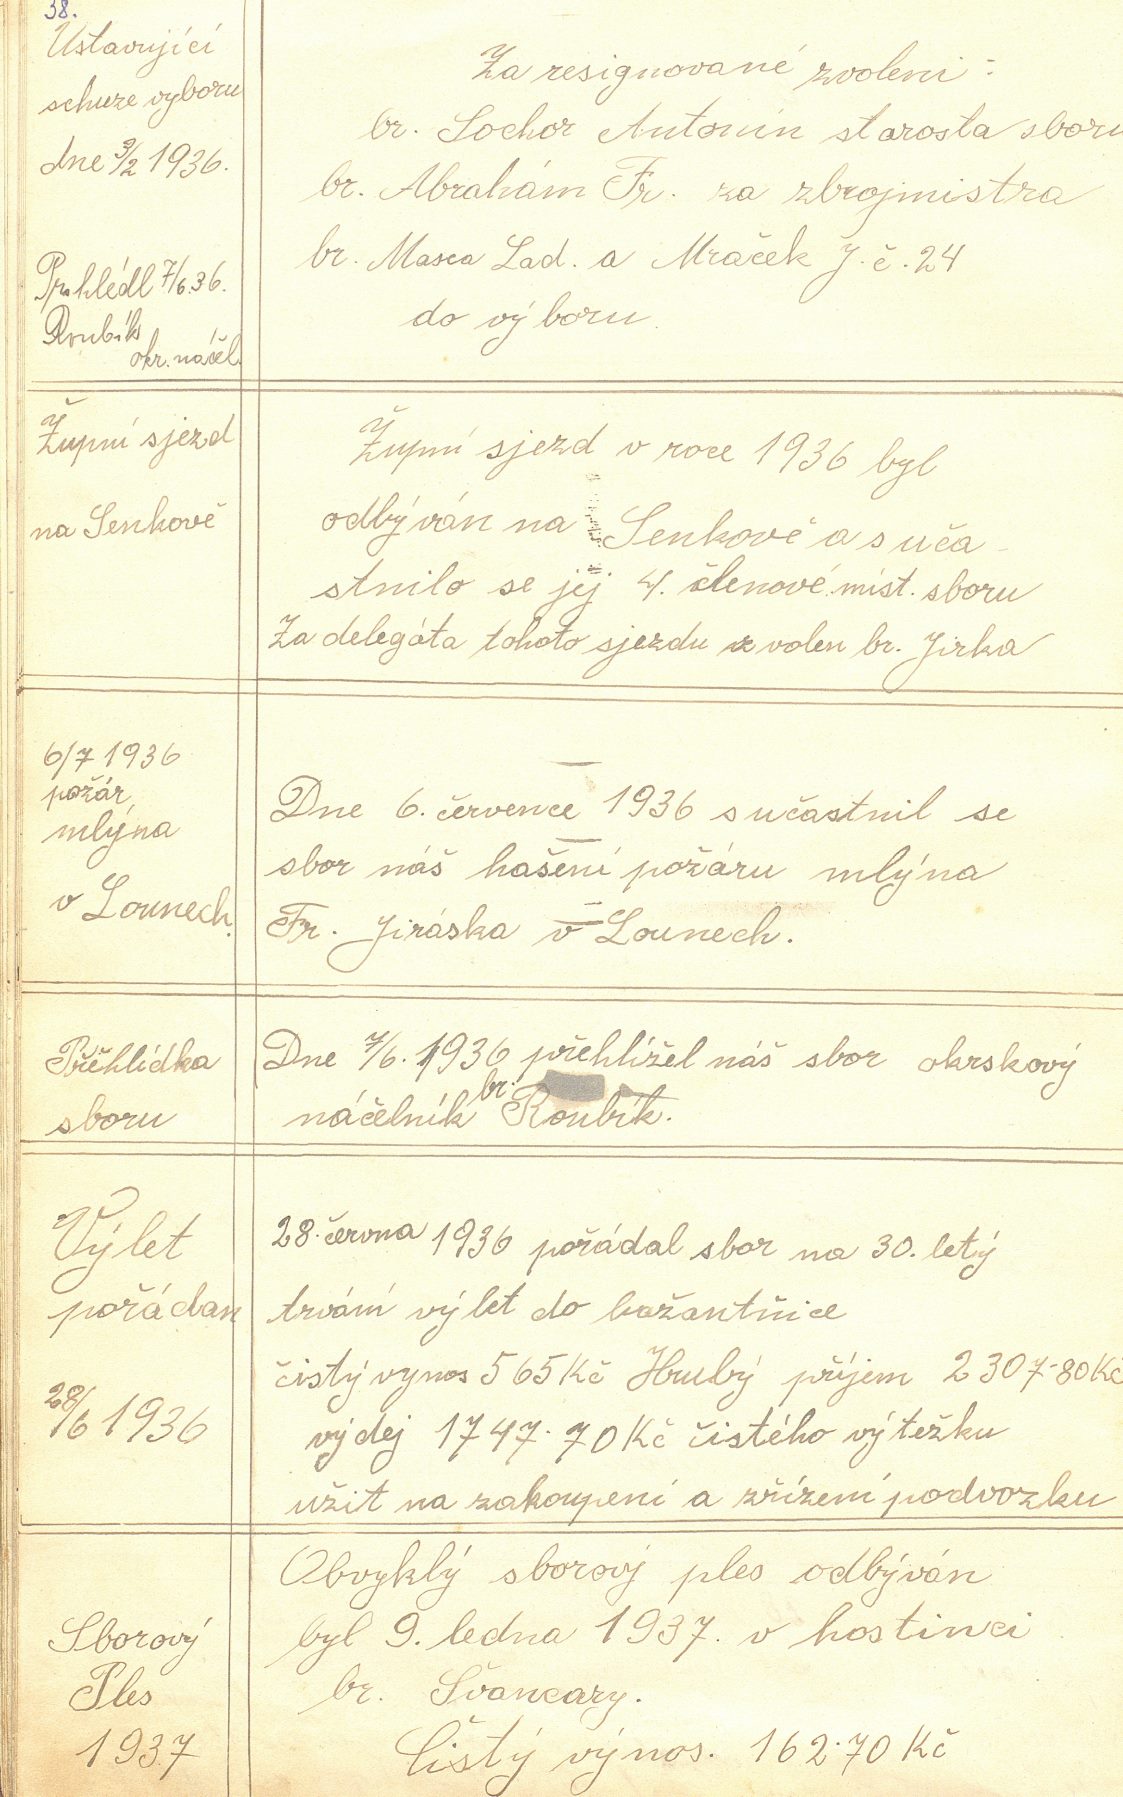 38.
Ustavující
schuze vyboru
dne 9/2 1936.
Prohlédl 7/6.36.
Roubík
okr. náčel.
Za resignované zvoleni:
br. Lochor Antonín starosta sboru
br. Abrahám Fr. za zbrojmistra
br. Masca Lad. a Mráček J. č. 24
do výboru.
Župní sjezd
na Lenkově
Župní sjezd v roce 1936 byl
odbýván na Lenkově a suča-
stnilo se jej 4. členové míst. sboru
Za delegáta tohoto sjezdu zvolen br. Jirka
6/7 1936
požár
mlýna
v Lounech.
Dne 6. července 1936 sučastnil se
sbor náš hašení požáru mlýna
Fr. Jiráska v Lounech.
Přěhlídka
sboru
Dne 7/6. 1936 přehlížel náš sbor okrskový
náčelník br. Roubík.
Výlet
pořádan
28/6 1936
28. června 1936 pořádal sbor na 30. letý
trvání výlet do bažantňice
čistý vynos 565 Kč Hrubý příjem 2307-80 Kč
výdej 1747.70 Kč čistého výtežku
užit na zakoupení a zřízení podvozku
Sborový
Ples
1937
Obvyklý sborový ples odbýván
byl 9. ledna 1937. v hostinci
br. Švancary.
Čistý výnos. 162.70 Kč